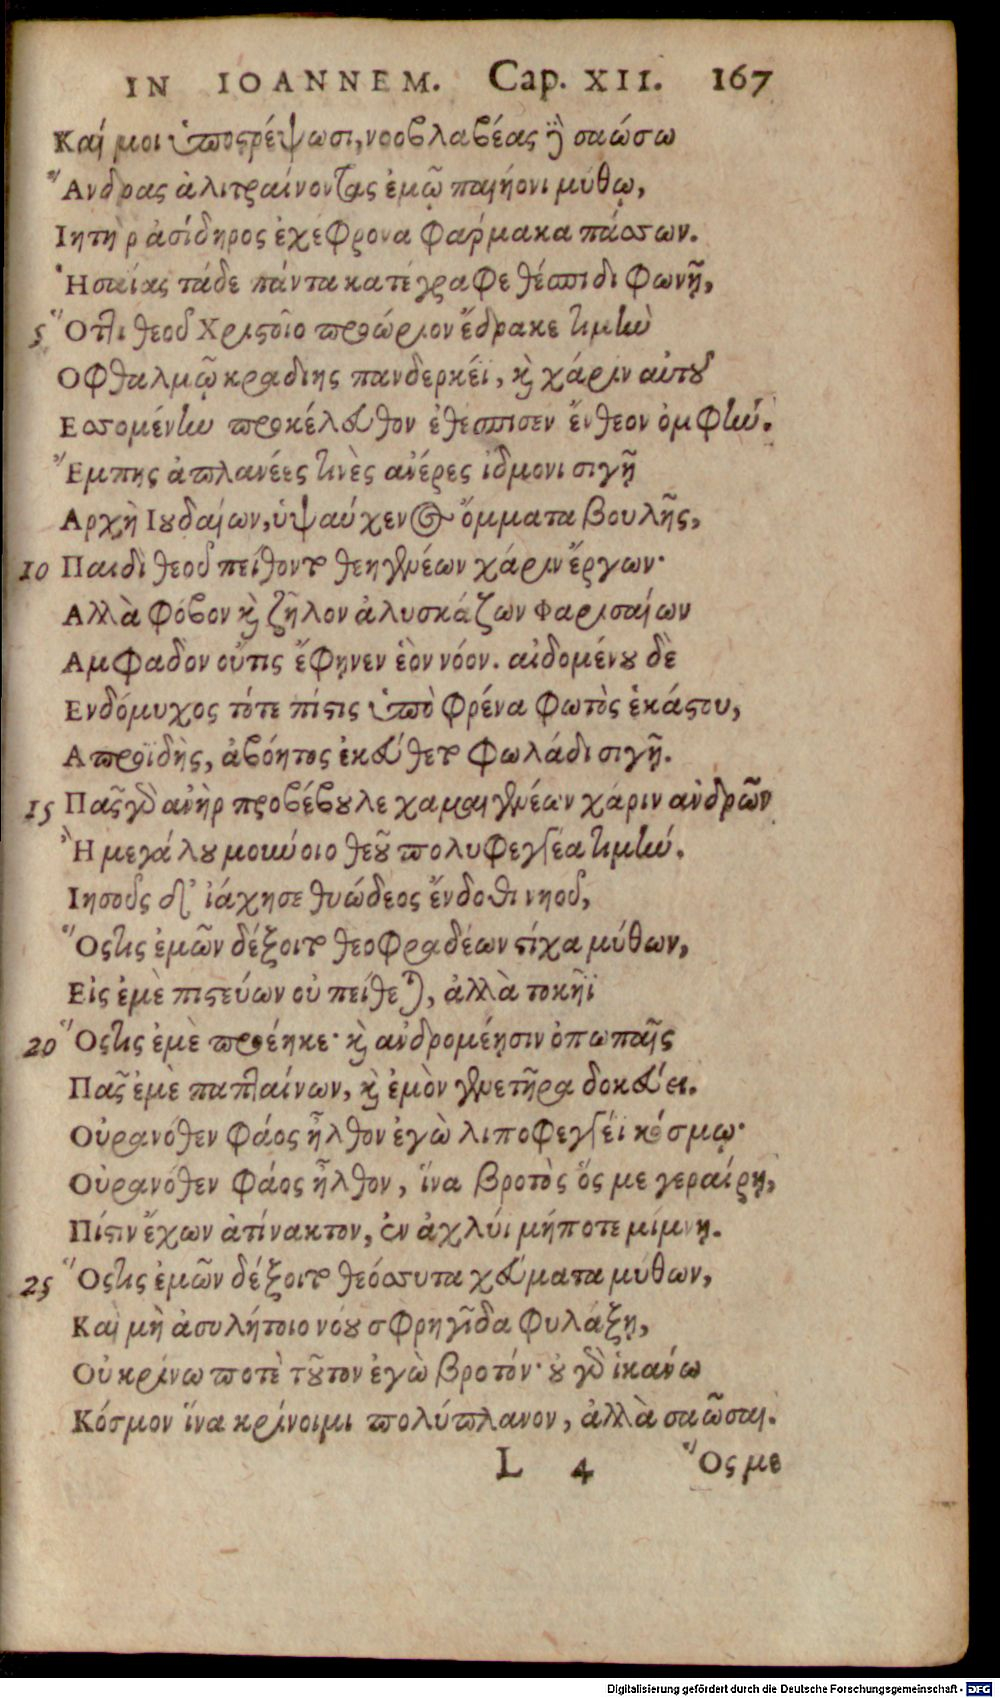 IN IOANNEM. Cap. XII. 167
Καί μοι ὑποςρέψωσι, νοοβλαβέας ἢ σαώσω
Ἄνδρας ἀλιτραίνοντας ἐμῷ παιήονι μύθῳ,
Ιητὴρ ἀσίδηρος ἐχέφρονα φάρμακα πάσσων.
Ἡσαίας τάδε πάντα κατέγραφε θέσπιδι φωνῇ,
5 Ὅτι θεοῦ Χριςοῖο προώριον ἔδρακε τιμὴν
Οφθαλμῷ κραδίης πανδερκέϊ, καὶ χάριν αὐτοῦ
Εσσομένην προκέλευθον ἐθέσπισεν ἔνθεον ὀμφήν.
Ἔμπης ἀπλανέες τινὲς ἀνέρες ἴδμονι σιγῇ
Αρχὴ Ιουδαίων, ὑψαύχενος ὄμματα βουλῆς,
10 Παιδὶ θεοῦ πείθοντο θεηγενέων χάριν ἔργων·
Αλλὰ φόβον καὶ ζῆλον ἀλυσκάζων Φαρισαίων
Αμφαδὸν οὔτις ἔφηνεν ἑὸν νόον. αἰδομένου δὲ
Ενδόμυχος τότε πίςις ὑπὸ φρένα φωτὸς ἑκάςου,
Απροϊδὴς, ἀβόητος ἐκεύθετο φωλάδι σιγῇ.
15 Πᾶς γὰρ ἀνὴρ προβέβουλε χαμαιγενέων χάριν ἀνδρῶν
Ἢ μεγάλου μούνοιο θεοῦ πολυφεγγέα τιμήν.
Ιησοῦς δ' ἰάχησε θυώδεος ἔνδοθι νηοῦ,
Ὅςτις ἐμῶν δέξοιτο θεοφραδέων ςίχα μύθων,
Εἰς ἐμὲ πιςεύων οὐ πείθεται, ἀλλὰ τοκῆϊ
20 Ὅςτις ἐμὲ προέηκε· καὶ ἀνδρομέῃσιν ὀπωπαῖς
Πᾶς ἐμὲ παπταίνων, καὶ ἐμὸν γενετῆρα δοκεύει.
Οὐρανόθεν φάος ἦλθον ἐγὼ λιποφεγγέϊ κόσμῳ·
Οὐρανόθεν φάος ἦλθον, ἵνα βροτὸς ὅς με γεραίρῃ,
Πίςιν ἔχων ἀτίνακτον, ἐν ἀχλύϊ μήποτε μίμνῃ.
25 Ὅςτις ἐμῶν δέξοιτο θεόσσυτα χεύματα μύθων,
Καὶ μὴ ἀσυλήτοιο νόου σφρηγῖδα φυλάξῃ,
Οὐ κρίνω ποτὲ τοῦτον ἐγὼ βροτόν· οὐ γὰρ ἱκάνω
Κόσμον ἵνα κρίνοιμι πολύπλανον, ἀλλὰ σαῶσαι.
L 4 Ὅς με
Digitalisierung gefördert durch die Deutsche Forschungsgemeinschaft - DFG